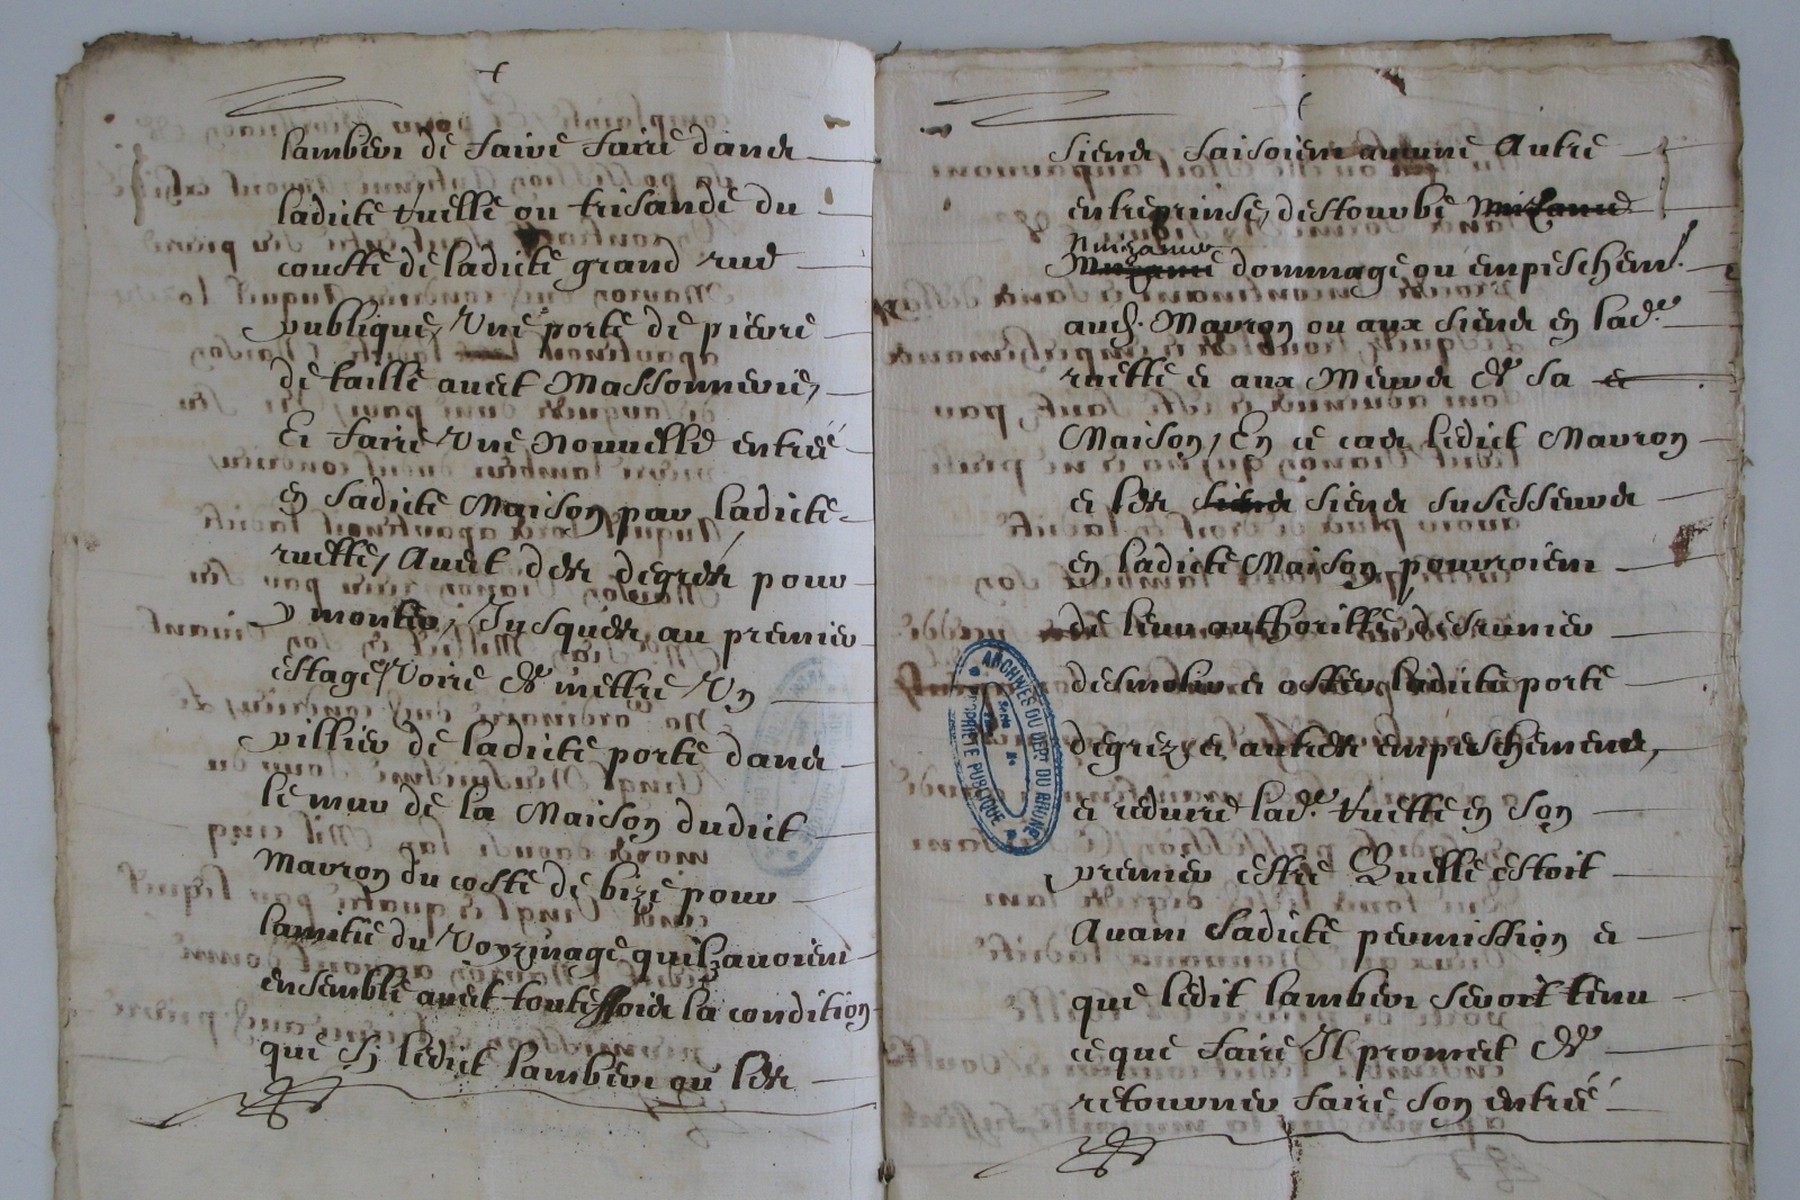 lambert de faire faire dans
ladicte ruelle ou trisande du
cousté de ladicte grand rue
publique, Une porte de pierre
de taille avect Massonnerie,
Et faire Une Nouvelle entrée
en sadicte Maison par ladicte
ruette, Avect des degrés pour
y monter, Jusques au premier
estage, Voire et mettre Un
pillier de ladicte porte dans
le mur de la Maison dudict
Mavron du costé de bize pour
lamitié du Voyzinage quilz avoient
ensemble avect touteffois la condition
que sy ledict lambert ou les
siens faisoient aucune Autre
entreprinse, destourbe
Nuizance dommage ou empeschemt.
aud. Mavron ou aux siens en lade.
ruette et aux Meurs et sa
Maison, En ce cas ledict Mavron
et les siens susesseurs
en ladicte Maison pourroient
de leur authoritté, desrunier
desmolir et oster ladicte porte
degrez et autres empeschements,
et reduire lade. ruette en son
premier estre Quelle estoit
Avant ladicte permission et
que ledit lambert seroit tenu
ce que faire Il promect et
retourner faire son entrée
ARCHIVES DU DEPT DU RHONE
PROPRIETE PUBLIQUE